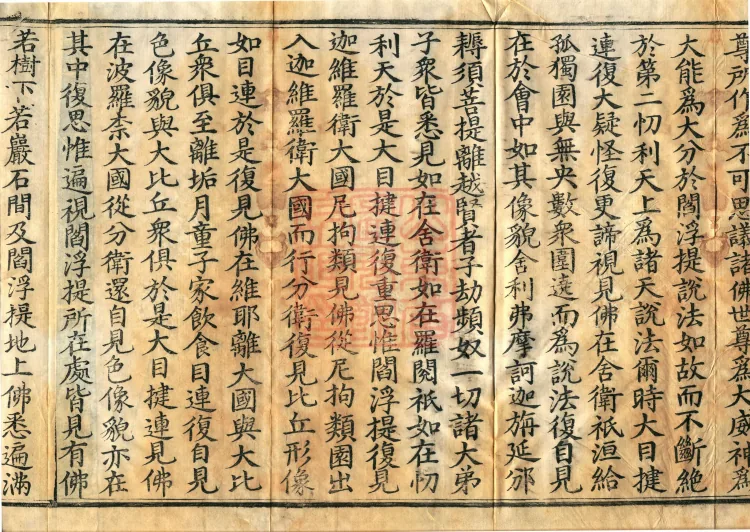 尊所作爲不可思議諸佛世尊爲大威神爲
大能爲大分於閻浮提說法如故而不斷絶
於第二忉利天上爲諸天說法爾時大目揵
連復大疑怪復更諦視見佛在舍衛祇洹給
孤獨園與無央數衆圍遶而爲說法復自見
在於會中如其像貌舍利弗摩訶迦旃延邠
耨須菩提離越賢者子劫頻奴一切諸大弟
子衆皆悉見如在舍衛如在羅閱祇如在忉
利天於是大目揵連復重思惟閻浮提復見
迦維羅衛大國尼拘類見佛從尼拘類園出
入迦維羅衛大國而行分衛復見比丘形像
如目連於是復見佛在維耶離大國與大比
丘衆俱至離垢月童子家飲食目連復自見
色像貌與大比丘衆俱於是大目揵連見佛
在波羅柰大國從分衛還自見色像貌亦在
其中復思惟遍視閻浮提所在處皆見有佛
若樹下若巖石間及閻浮提地上佛悉遍滿